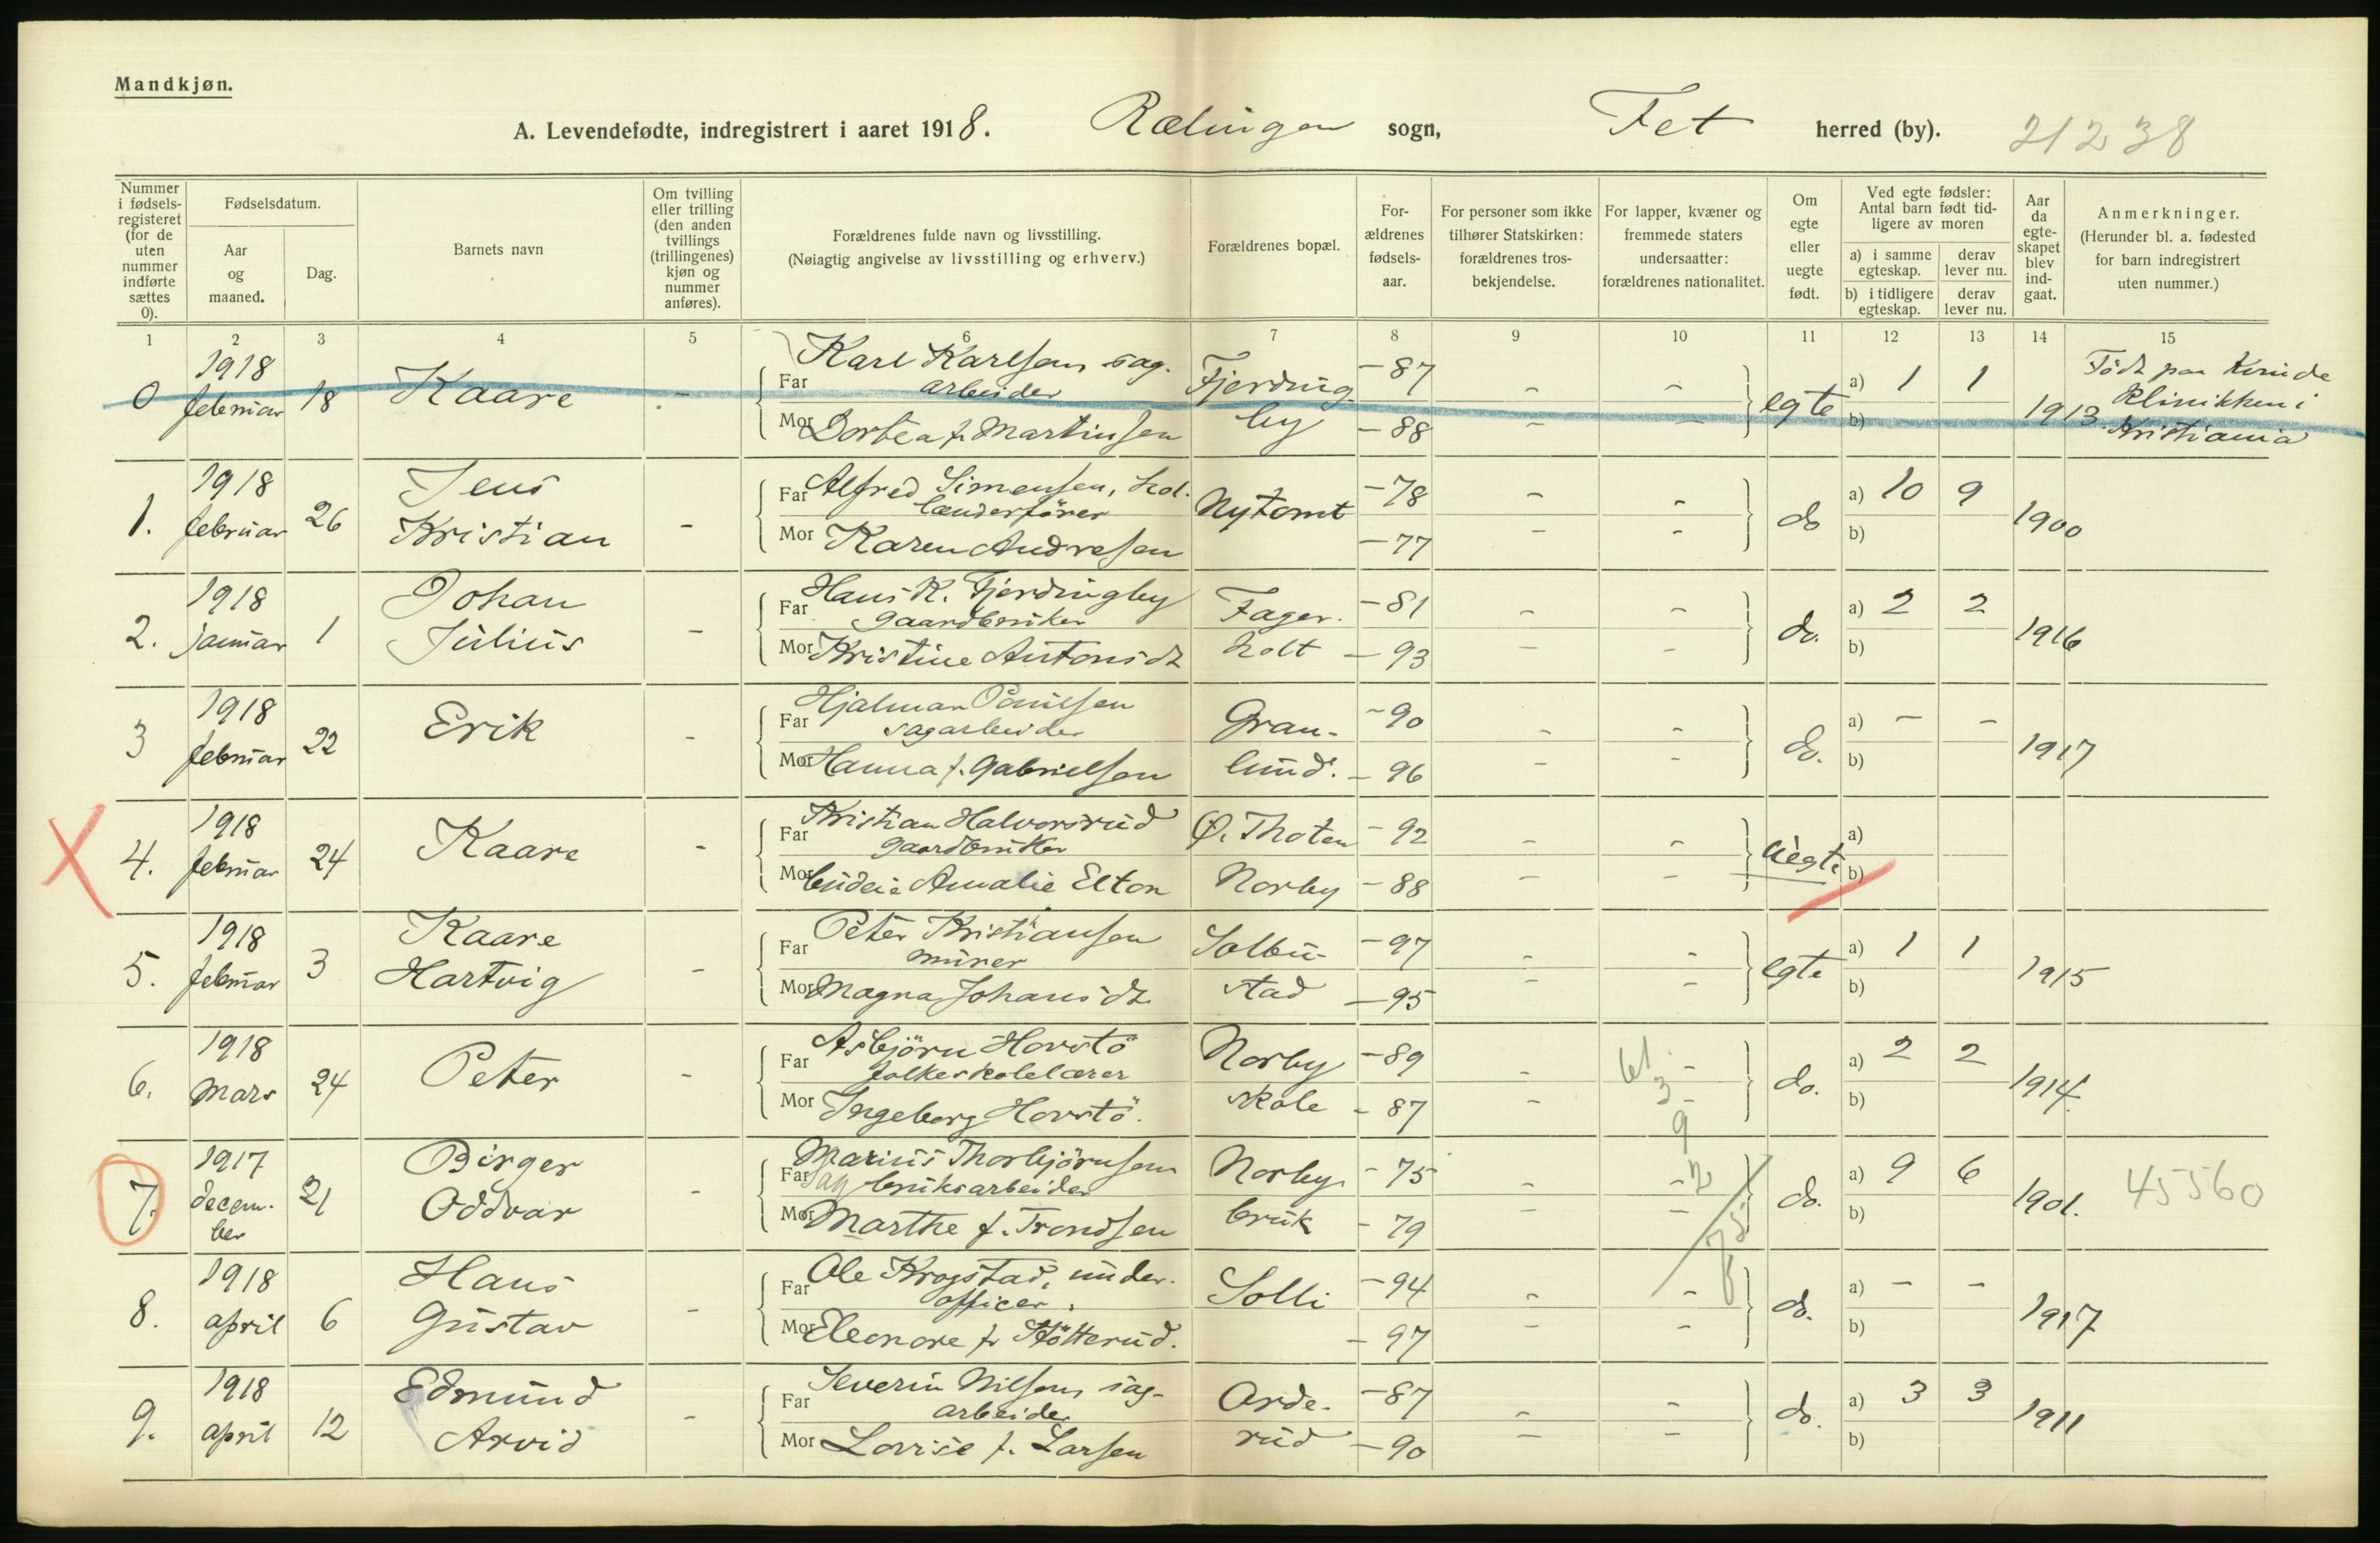 Mandkjøn.
A. Levendefødte, indregistrert i aaret 1918. Rælingen sogn, Fet herred (by). 21238
Nummer i fødsels-registeret (for de uten nummer indførte sættes 0).
Fødselsdatum.
Aar og maaned.
Dag.
Barnets navn
Om tvilling eller trilling (den anden tvillings (trillingenes) kjøn og nummer anføres).
Forældrenes fulde navn og livsstilling.
(Nøiagtig angivelse av livsstilling og erhverv.)
Forældrenes bopæl.
For-ældrenes fødsels-aar.
For personer som ikke tilhører Statskirken: forældrenes tros-bekjendelse.
For lapper, kvæner og fremmede staters undersaatter: forældrenes nationalitet.
Om egte eller uegte født.
Ved egte fødsler: Antal barn født tid-ligere av moren
a) i samme egteskap. derav lever nu.
b) i tidligere egteskap. derav lever nu.
Aar da egte-skapet blev ind-gaat.
Anmerkninger.
(Herunder bl. a. fødested for barn indregistrert uten nummer.)
1 2 3 4 5 6 7 8 9 10 11 12 13 14 15
0 1918 februar 18 Kaare -
Far Karl Karlsen, sag-arbeider Fjerding- -87 - -
Mor Dortea f. Martinsen by -88 - -
egte a) 1 1 b) 1913 Född paa Kvinde Klinikken i Kristiania
1. 1918 februar 26 Jens Kristian -
Far Alfred Simensen, hol-lænderfører Nytomt -78 - -
Mor Karen Andresen -77 - -
do a) 10 9 b) 1900
2. 1918 januar 1 Johan Julius -
Far Hans K. Fjerdingby gaardbruker Fager- -81 - -
Mor Kristine Antonsdt holt -93 - -
do. a) 2 2 b) 1916
3 1918 februar 22 Erik -
Far Hjalmar Paulsen sagarbeider Gran- -90 - -
Mor Hanna f. Gabrielsen lund. -96 - -
do. a) - - b) 1917
4. 1918 februar 24 Kaare -
Far Kristian Halvorsrud gaardbruker Ø. Thoten -92 - -
Mor budeie Amalie Elton Norby -88 - -
uegte a) b)
5. 1918 februar 3 Kaare Hartvig -
Far Peter Kristiansen murer Solbu- -97 - -
Mor Magna Johansdt stad -95 - -
egte a) 1 1 b) 1915
6. 1918 Mars 24 Peter -
Far Asbjörn Hovstö folkeskolelærer Norby -89 - -
Mor Ingeborg Hovstö. skole -87 - -
do. a) 2 2 b) 1914.
61 3 9 2
7. 1917 decem-ber 21 Birger Oddvar -
Far Marius Thorbjörnsen Sagbruksarbeider Norby -75 - -
Mor Marthe f. Trondsen bruk -79 - -
do. a) 9 6 b) 1901. 45560
8. 1918 april 6 Hans Gustav -
Far Ole Krogstad, under-officer. Solli -94 - -
Mor Eleonore f. Støtterud. -97 - -
do. a) - - b) 1917
9. 1918 april 12 Edmund Arvid -
Far Severin Nilsen, sag-arbeider Orde- -87 - -
Mor Lovise f. Larsen rud -90 - -
do. a) 3 3 b) 1911